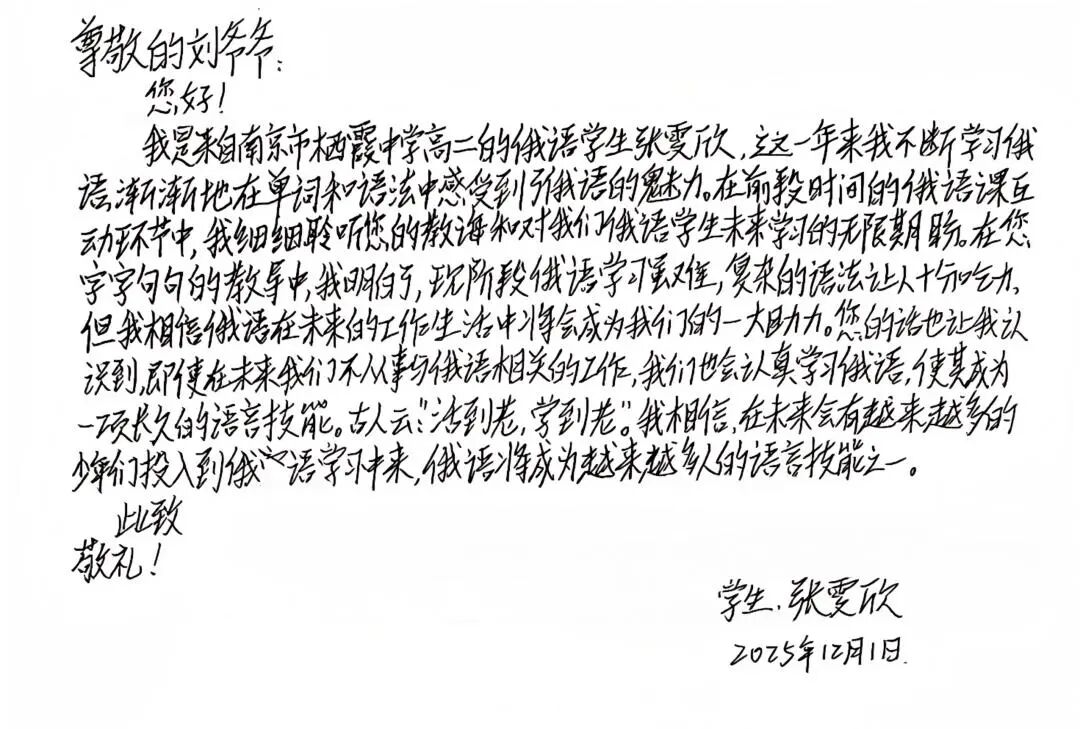 尊敬的刘爷爷：
您好！
我是来自南京市栖霞中学高二的俄语学生张雯欣，这一年来我不断学习俄
语，渐渐地在单词和语法中感受到了俄语的魅力。在前段时间的俄语课互
动环节中，我细细聆听您的教诲和对我们俄语学生未来学习的无限期盼。在您
字字句句的教导中，我明白了，现阶段俄语学习虽难，复杂的语法让人十分吃力，
但我相信俄语在未来的工作生活中将会成为我们的一大助力。您的话也让我认
识到，即使在未来我们不从事与俄语相关的工作，我们也会认真学习俄语，使其成为
一项长久的语言技能。古人云：“活到老，学到老”。我相信，在未来会有越来越多的
少年们投入到俄语学习中来，俄语将成为越来越多人的语言技能之一。
此致
敬礼！
学生：张雯欣
2025年12月1日